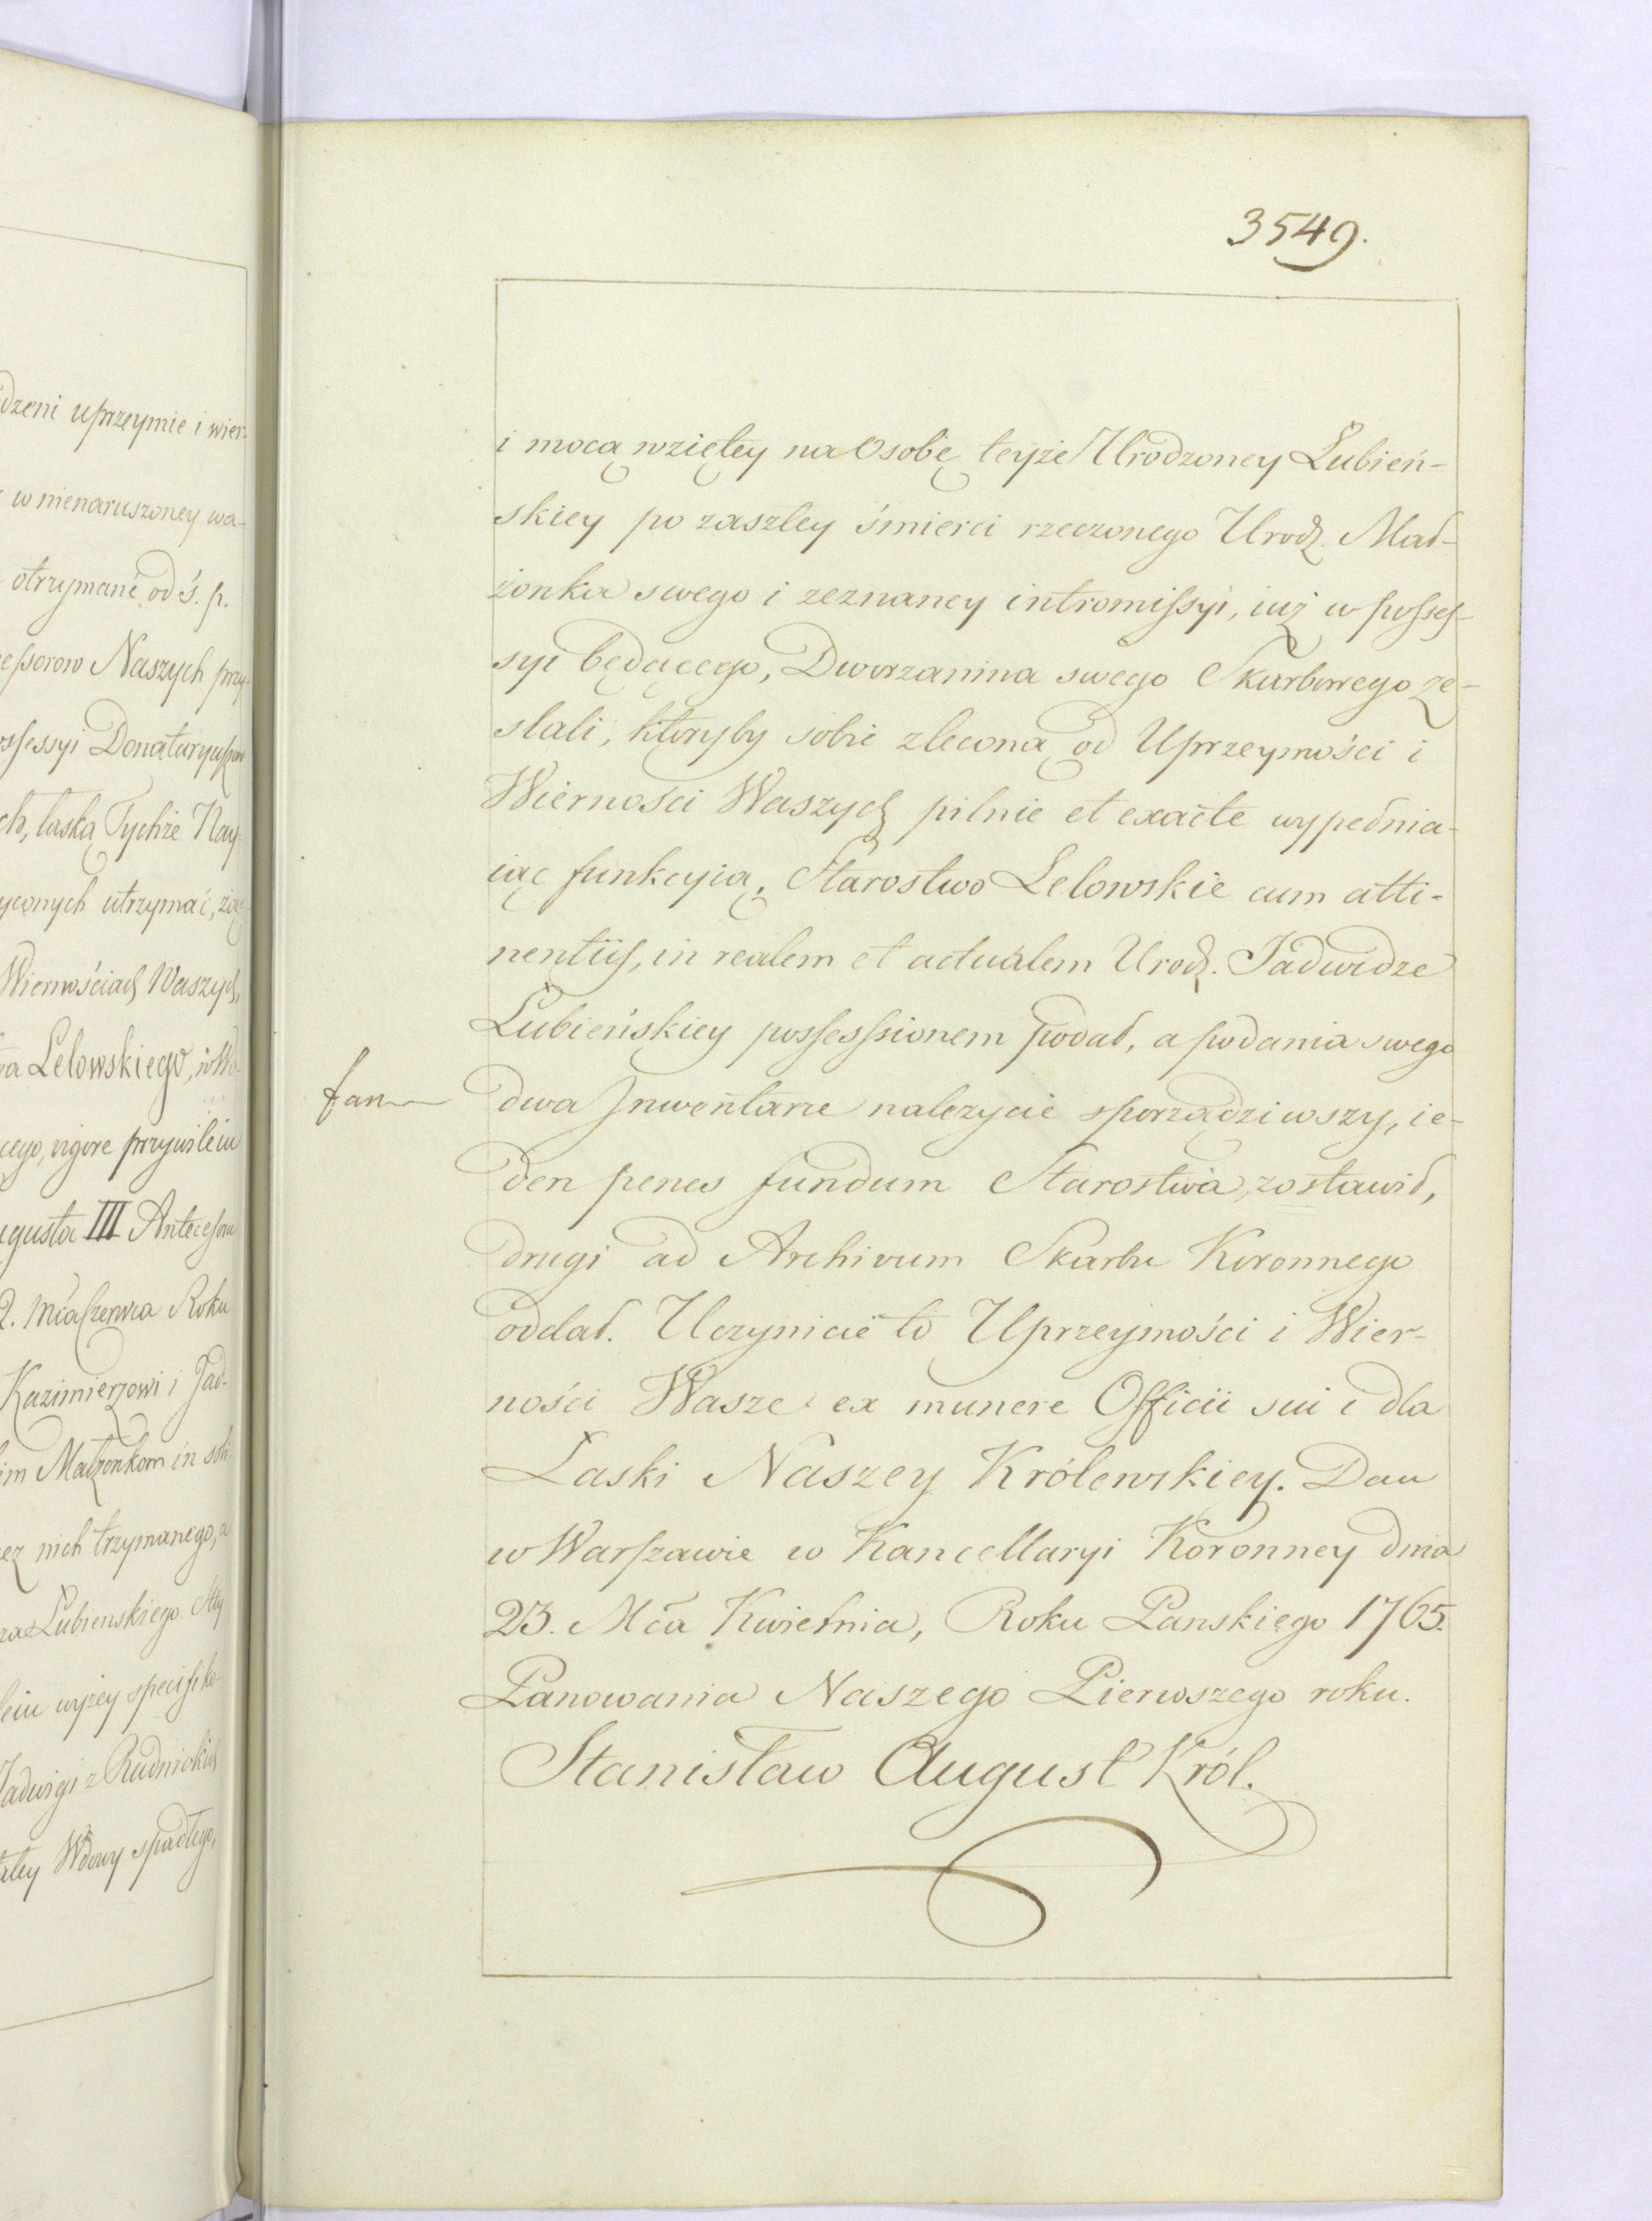 dzeni uprzeymie i wier-
w nienaruszoney wa-
otrzymane od ś. p.
Naszych przy-
ssessyi Donataryuszow
ch, łaską Tychże Nay-
yconych utrzymać,
Wiernościach Waszych,
Lelowskiego, w Wo-
cego, vigore przywileiu
ugusta III Antecessora
2. Mca Czerwca Roku
Kazimierzowi i Jad-
im Małżonkom in soli-
ez nich trzymanego, a
Lubienskiego
leiu wyżey specifiko-
Jadwigi z Rudnickich
ałey Wdowy spadłego,
3549.
i mocą wziętey na Osobę teyże Urodzoney Łubień-
skiey po zaszłey śmierci rzeczonego Urodz. Mał-
żonka swego i zeznaney intromissyi, iuż w posses-
syi będącego, Dworzanina swego Skarbowego ze-
słali, któryby sobie zleconą od Uprzeymości i
Wierności Waszych pilnie et exacte wypełnia-
iąc funkcyią, Starostwo Lelowskie cum atti-
nentiis, in realem et actualem Urodz. Jadwidze
Łubieńskiey possessionem podał, a podania swego
dwa Inwentarze należycie sporządziwszy, ie-
den penes fundum Starostwa zostawił,
drugi ad Archivum Skarbu Koronnego
oddał. Uczynicie to Uprzeymości i Wier-
ności Wasze ex munere Officii sui i dla
Łaski Naszey Królewskiey. Dan
w Warszawie w Kancellaryi Koronney dnia
23. Mca Kwietnia, Roku Panskiego 1765.
Panowania Naszego Pierwszego roku.
Stanisław August Król.